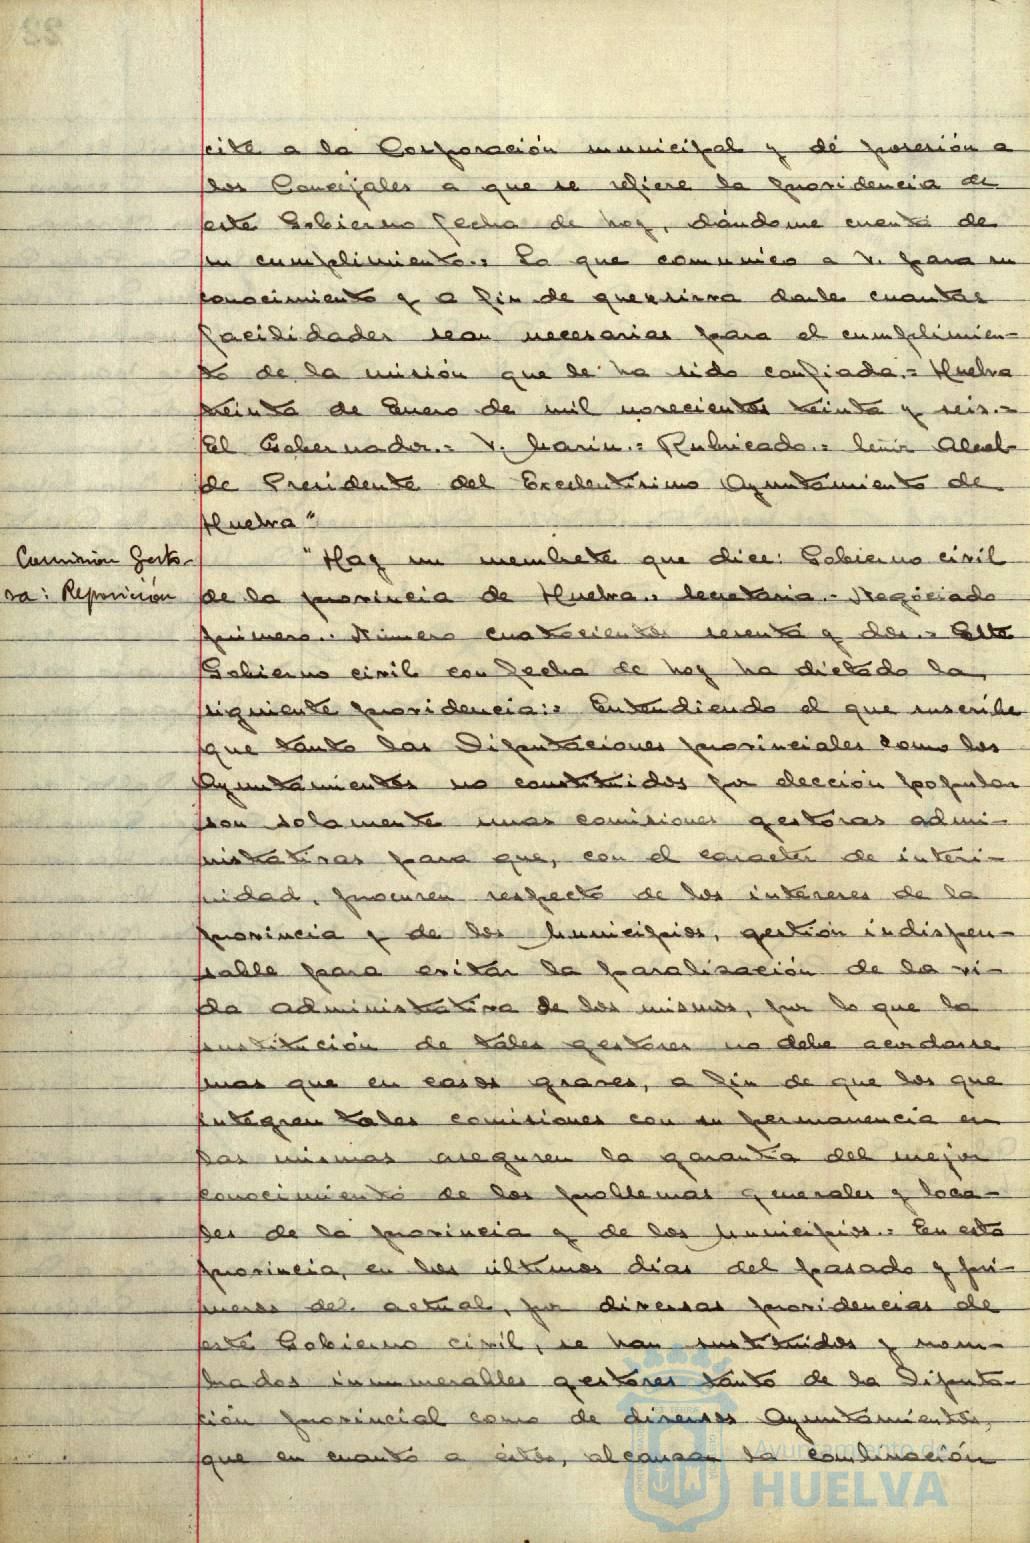 cite a la Corporación municipal y dé posesión a
los Concejales a que se refiere la providencia de
este Gobierno fecha de hoy, dándome cuenta de
su cumplimiento.= Lo que comunico a V. para su
conocimiento y a fin de que se sirva darle cuantas
facilidades sean necesarias para el cumplimien-
to de la misión que le ha sido confiada.= Huelva
treinta de Enero de mil novecientos treinta y seis.=
El Gobernador.= V. Marín.= Rubricado.= Señor Alcal-
de Presidente del Excelentísimo Ayuntamiento de
Huelva"
Comisión Gesto-
ra: Reposición
"Hay un membrete que dice: Gobierno civil
de la provincia de Huelva.= Secretaría.- Negociado
primero.. Número cuatrocientos sesenta y dos.= Este
Gobierno civil con fecha de hoy ha dictado la
siguiente providencia:= Entendiendo el que suscribe
que tanto las Diputaciones provinciales como los
Ayuntamientos no constituidos por elección popular
son solamente unas comisiones gestoras admi-
nistrativas para que, con el caracter de interi-
nidad, procuren respecto de los intereses de la
provincia y de los Municipios, gestión indispen-
sable para evitar la paralización de la vi-
da administrativa de los mismos, por lo que la
sustitución de tales gestores no debe acordarse
mas que en casos graves, a fin de que los que
integren tales comisiones con su permanencia en
las mismas aseguren la garantía del mejor
conocimiento de los problemas generales y loca-
les de la provincia y de los Municipios.= En esta
provincia, en los últimos días del pasado y pri-
meros del actual, por diversas providencias de
este Gobierno civil, se han sustituidos y nom-
brados innumerables gestores tanto de la Diputa-
ción provincial como de diversos Ayuntamientos,
que en cuanto a éstos, alcanzan la combinación
Ayuntamiento de
HUELVA